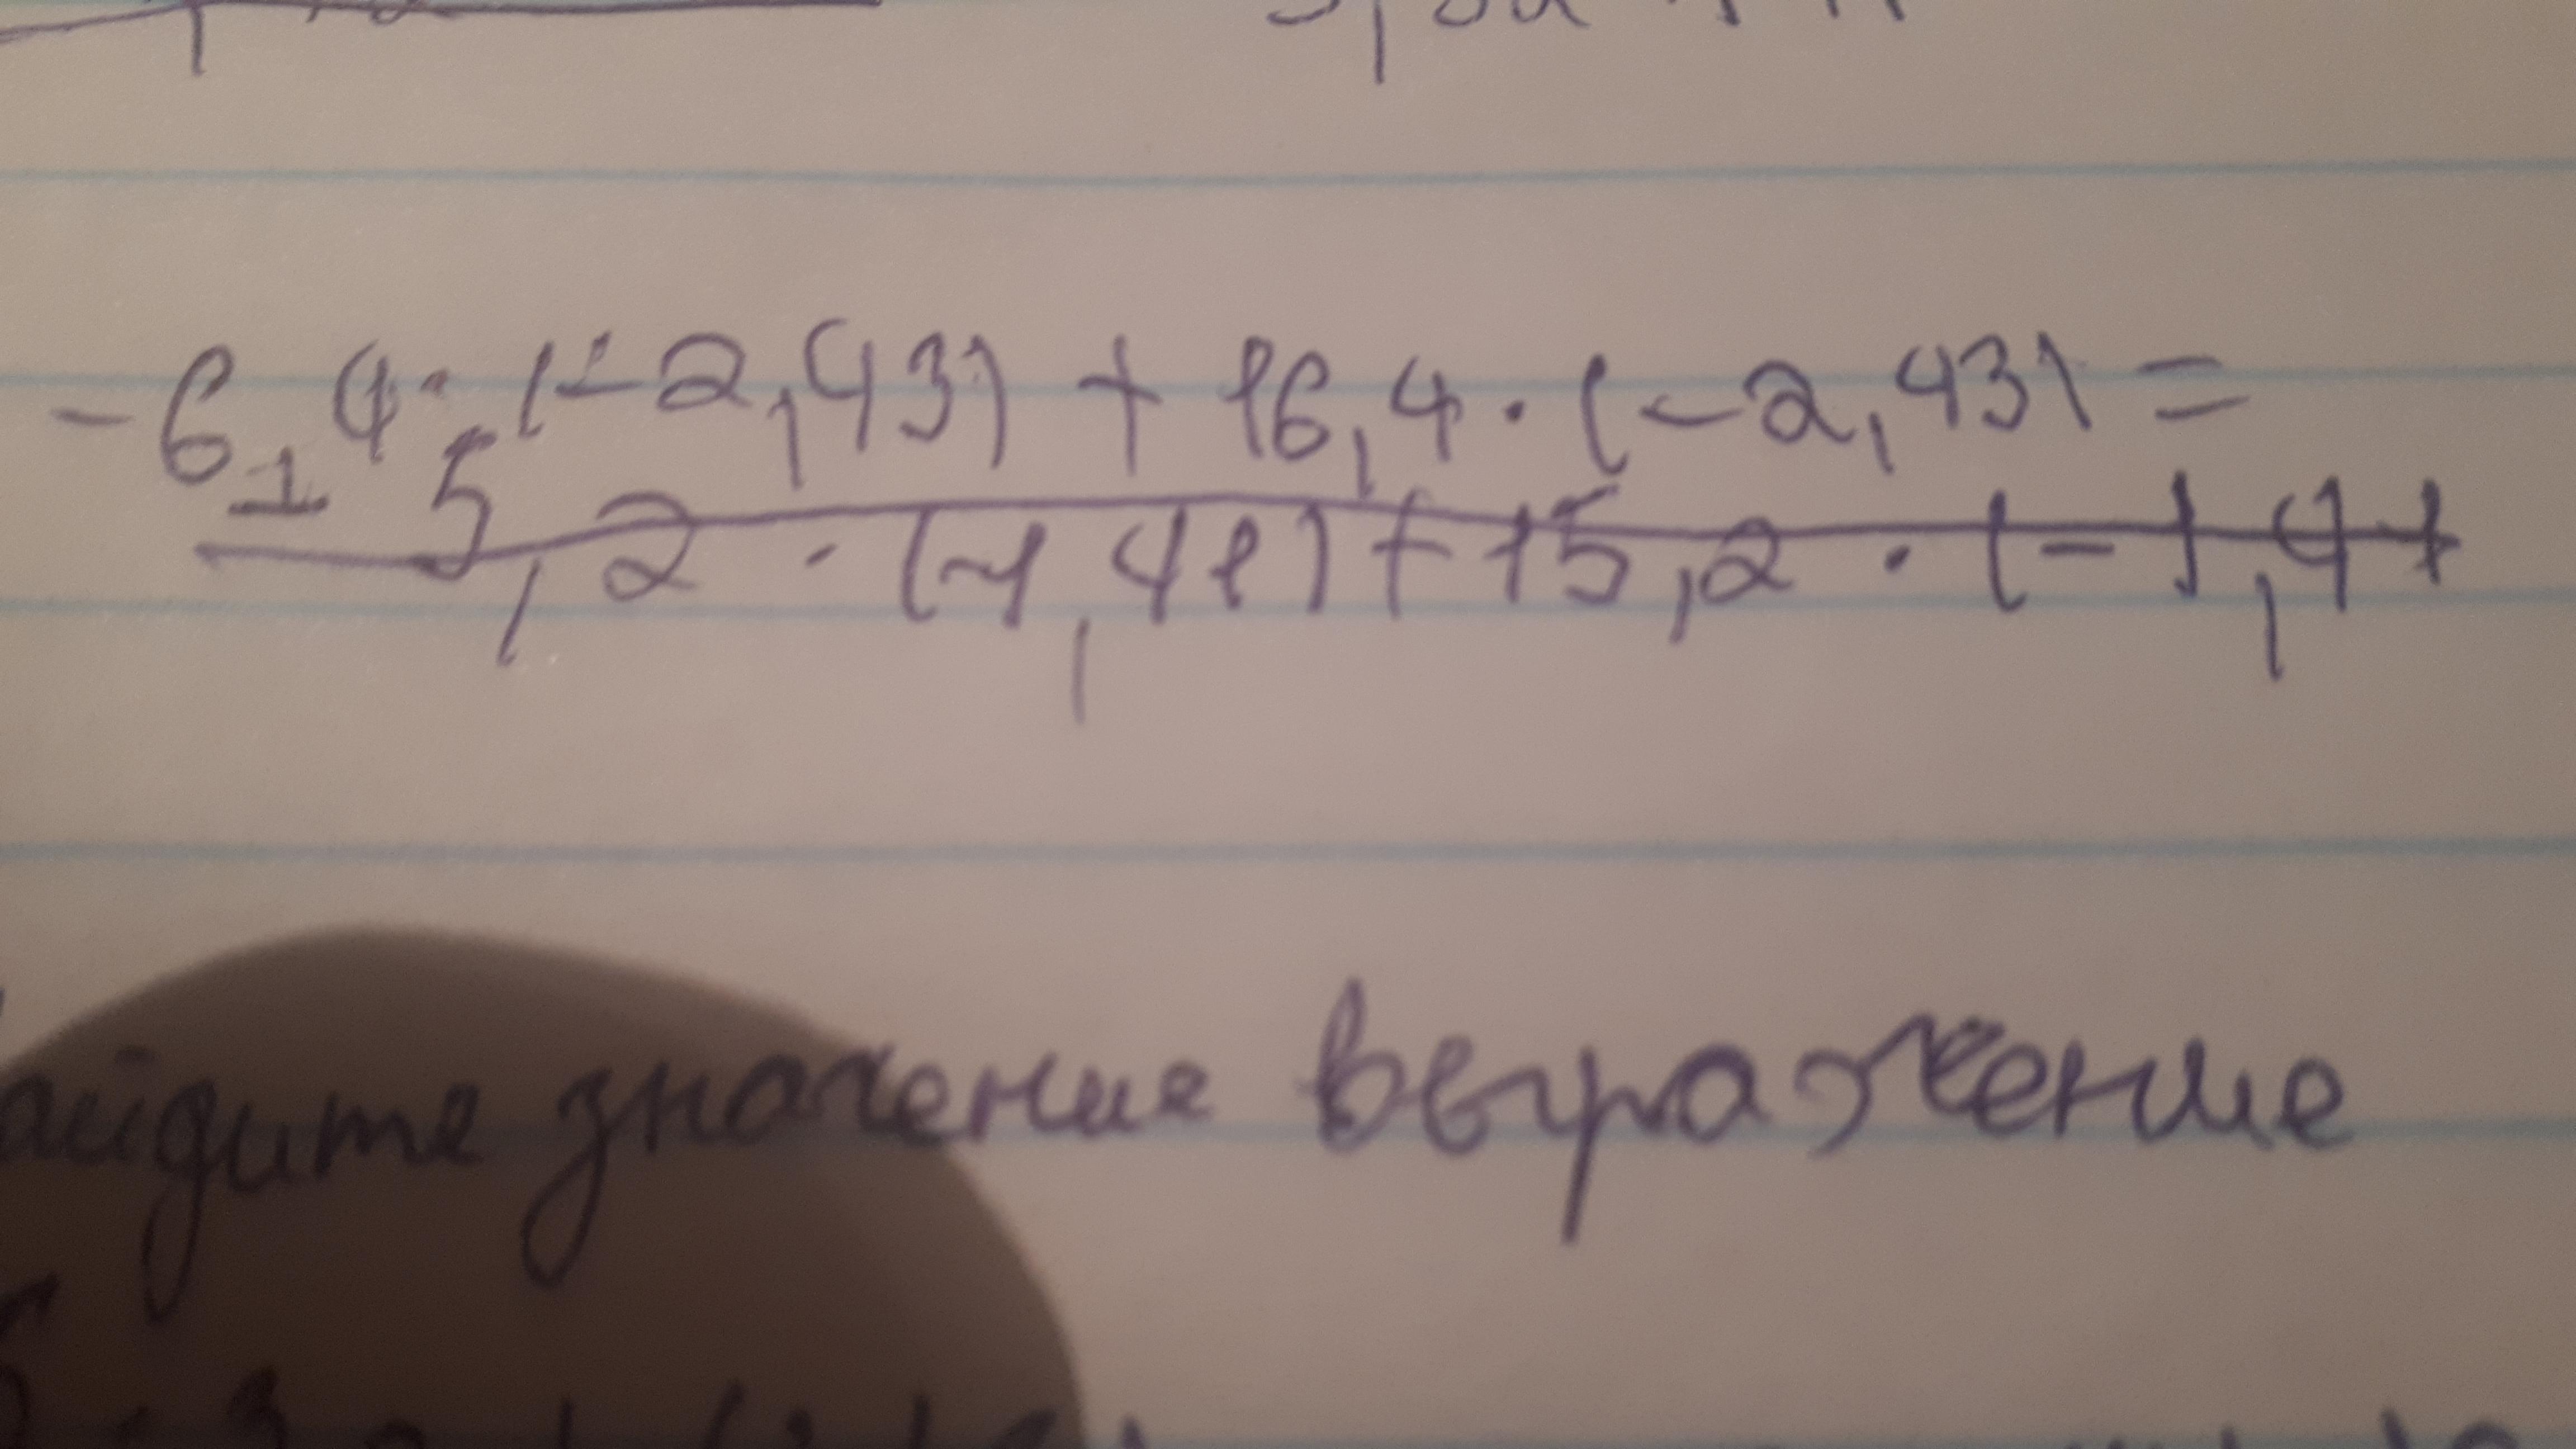 -6,4·(-2,43) + 16,4·(-2,43) =
- 5,2 · (-1,41) + 15,2 · (-1,41
айдите значение выражение